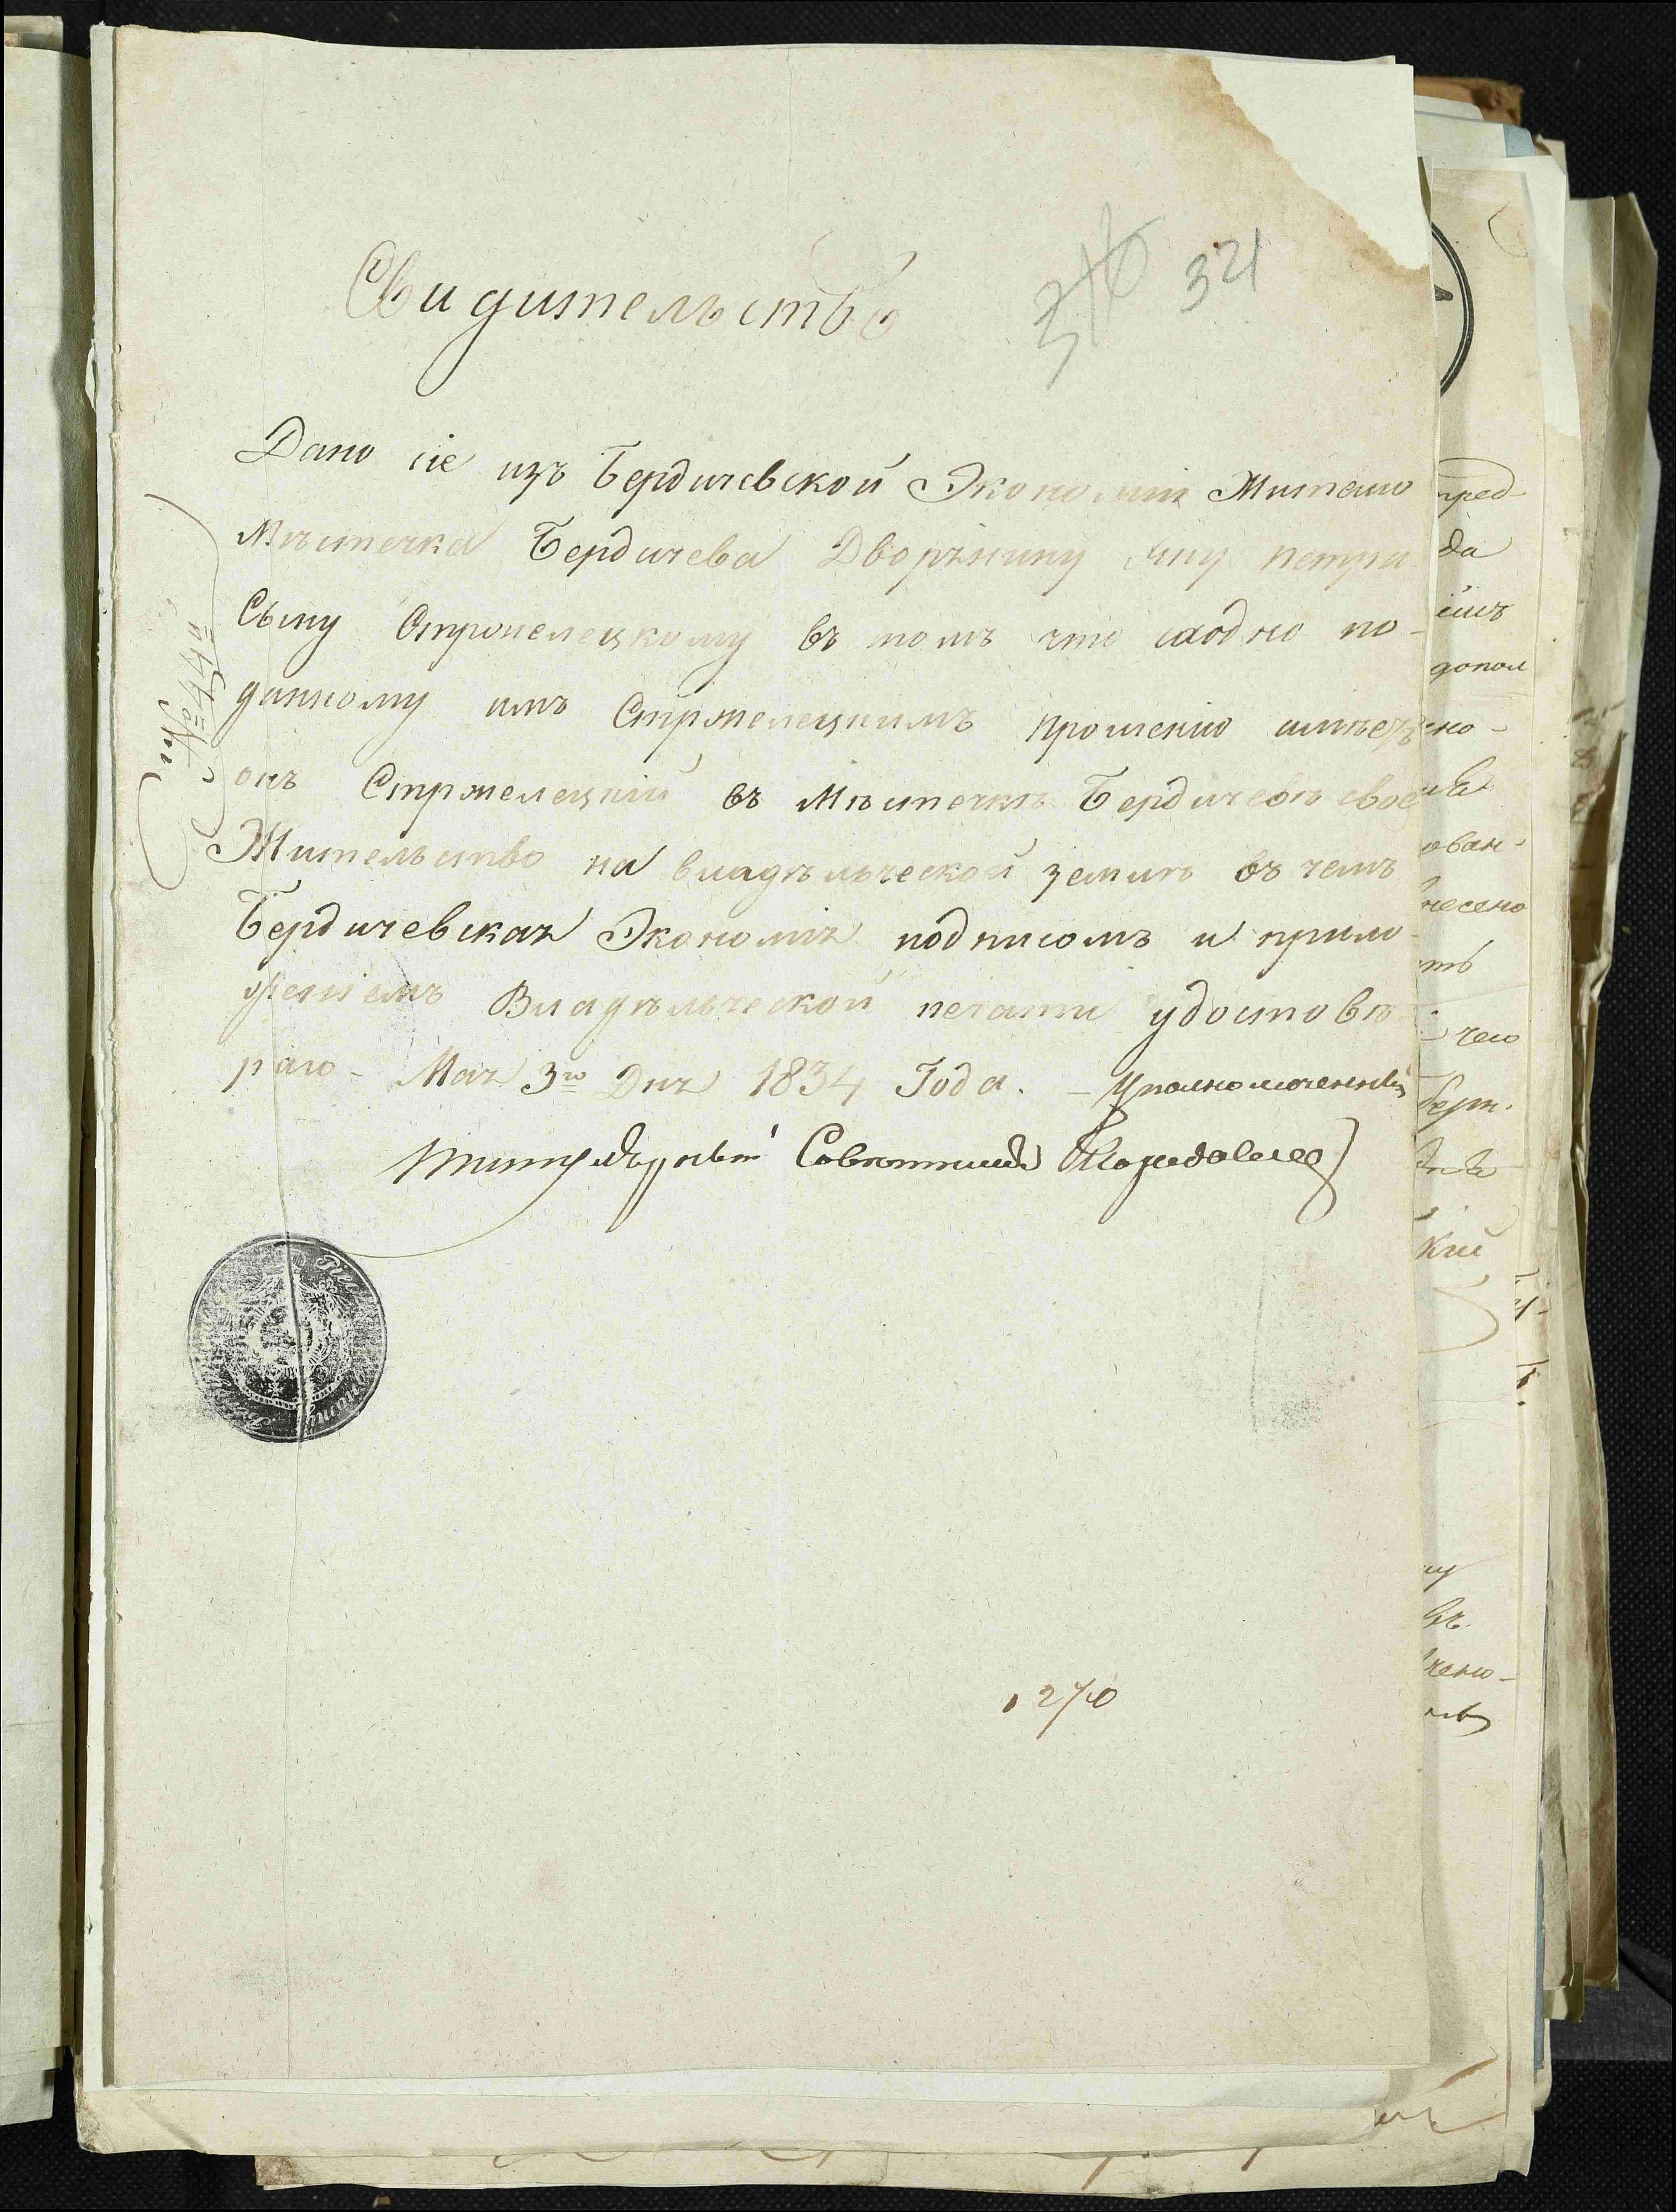 Свидительство
346 321
Дано сіе изъ Бердичевской Экономіи Жителю
Мѣстечка Бердичева Дворянину Яну Петра
Сыну Стржелецкому въ томъ что сходно по-
данному имъ Стржелецкимъ прошенію имѣетъ
онъ Стржелецкій въ Мѣстечкѣ Бердичевѣ свое
Жительство на владѣльческой землѣ въ чемъ
Бердичевская Экономія подписомъ и прило-
женіемъ Владѣльческой печати удостовѣ-
раю - Мая 3го Дня 1834 Года. - Уполномоченный
Титулярный Совѣтникъ
270